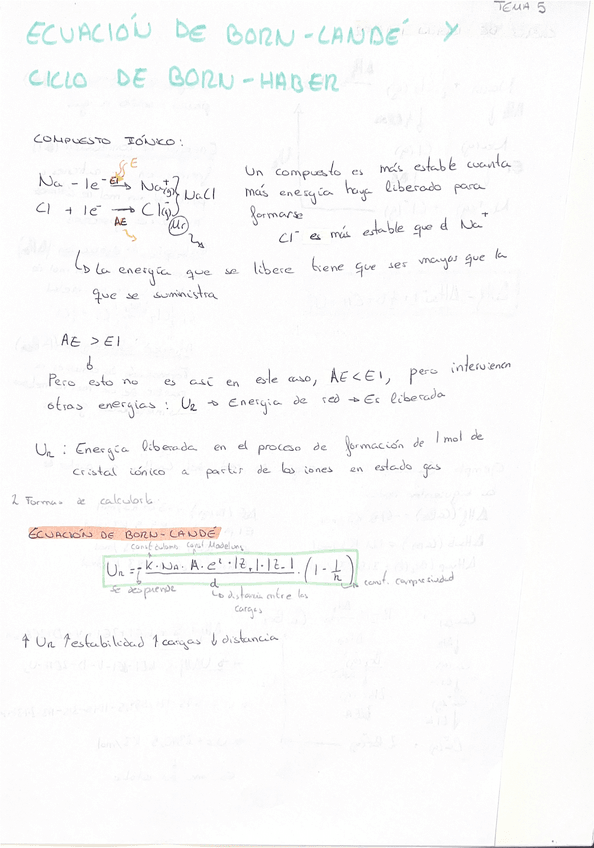 TEMA 5
ECUACIÓN DE BORN-LANDÉ Y
CICLO DE BORN-HABER
COMPUESTO IÓNICO:
E
Na - 1e⁻ EI → Na⁺(g) } NaCl
Cl + 1e⁻ → Cl⁻(g)
AE
Ur
Un compuesto es más estable cuanta
más energía haya liberado para
formarse
Cl⁻ es más estable que el Na⁺
↳ La energía que se libere tiene que ser mayor que la
que se suministra
AE > EI
Pero esto no es así en este caso, AE < EI, pero intervienen
otras energías: UR → Energía de red → Es liberada
UR : Energía liberada en el proceso de formación de 1 mol de
cristal iónico a partir de los iones en estado gas
2 Formas de calcularla
ECUACIÓN DE BORN-LANDÉ
const Madelung
UR = - K · NA · A · e² · |Z+| · |Z-| / d · (1 - 1/n)
se desprende
↳ distancia entre las
cargas
→ const. compresividad
↑ UR ↑ estabilidad ↑ cargas ↓ distancia